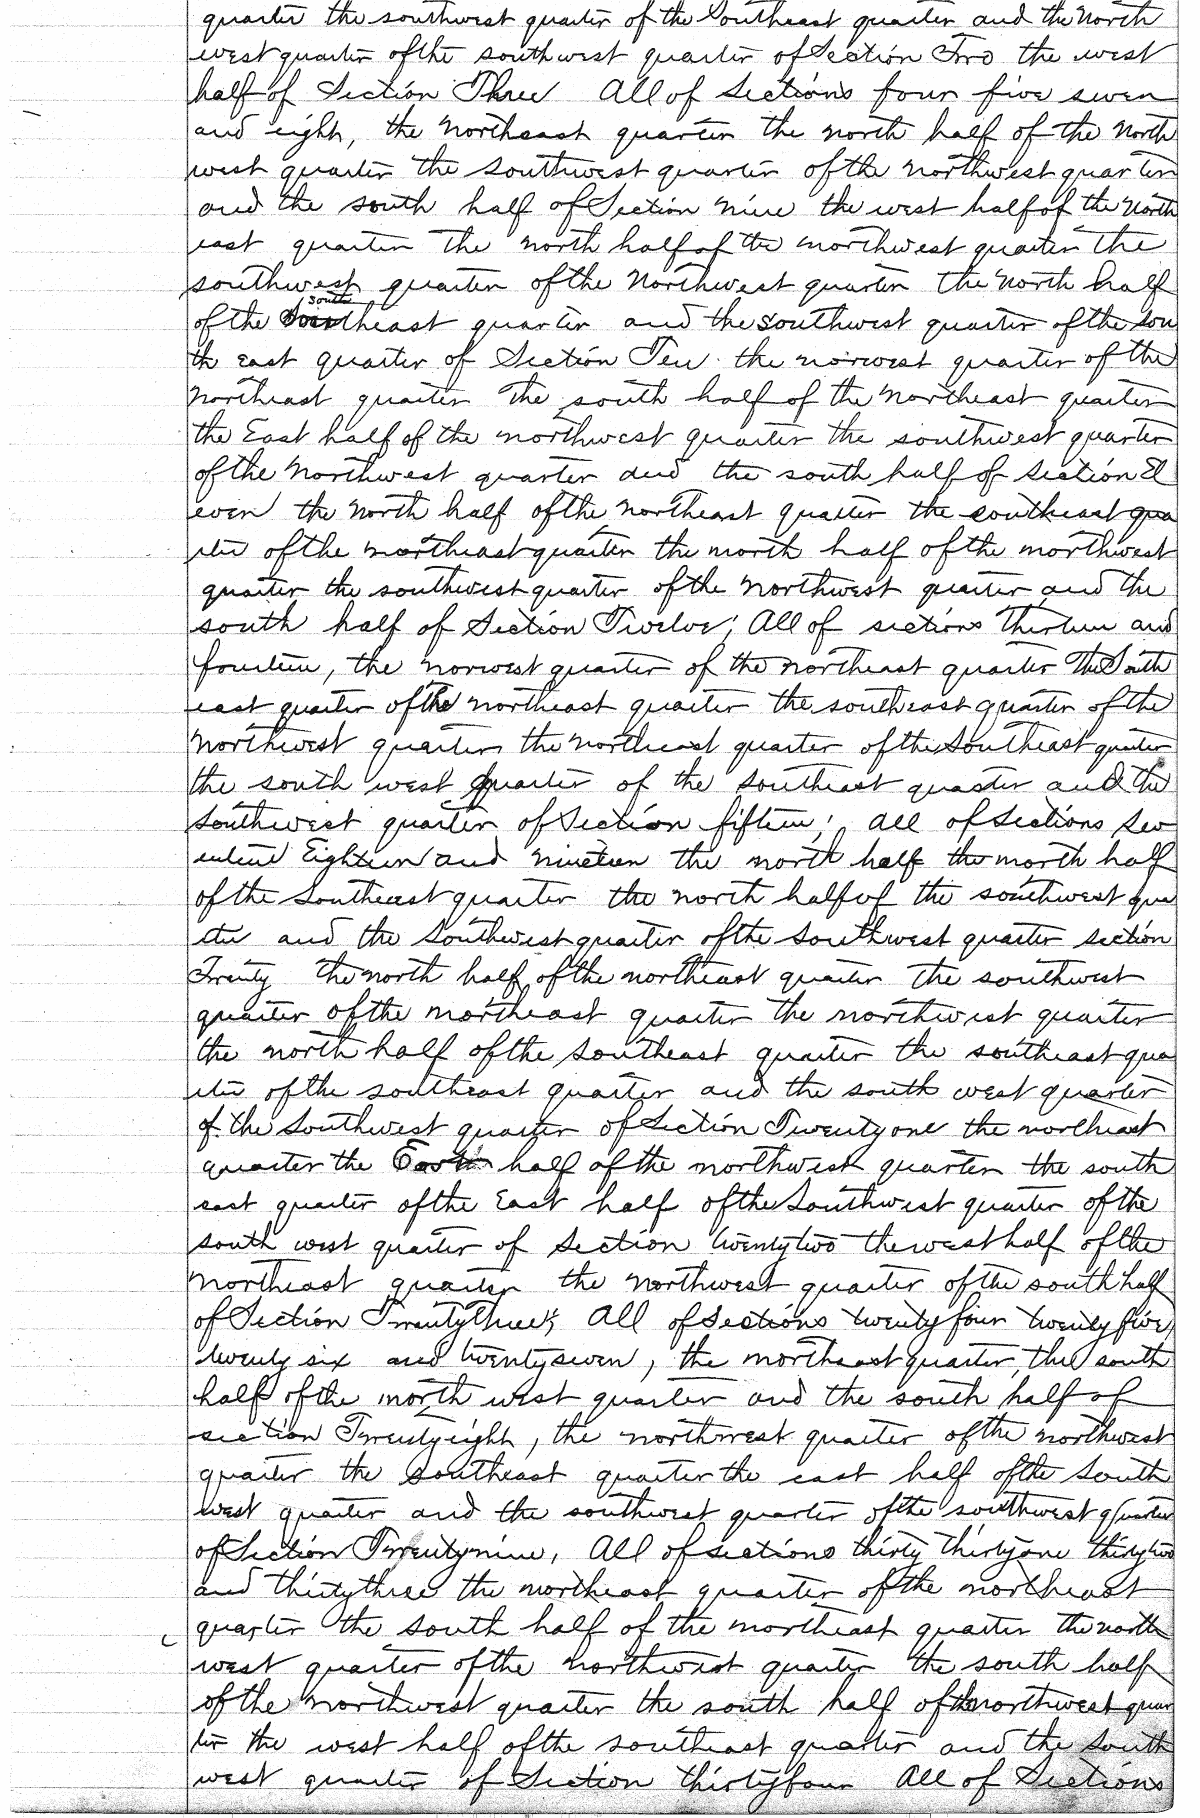 quarter the southwest quarter of the Southeast quarter and the North
west quarter of the southwest quarter of Section Two the west
half of Section Three All of Sections four five seven
and eight, the Northeast quarter the north half of the North
west quarter the southwest quarter of the Northwest quarter
and the south half of Section nine the west half of the North
east quarter the north half of the northwest quarter the
southwest quarter of the Northwest quarter the North half
of the southeast quarter and the southwest quarter of the sou
th east quarter of Section Ten the norwest quarter of the
Northeast quarter the south half of the Northeast quarter
the East half of the northwest quarter the southwest quarter
of the Northwest quarter and the south half of Section El
even the North half of the northeast quarter the southeast qua
rter of the northeast quarter the north half of the northwest
quarter the southwest quarter of the Northwest quarter and the
south half of Section Twelve; All of sections Thirteen and
fourteen, the norwest quarter of the northeast quarter the South
east quarter of the northeast quarter the southeast quarter of the
Northwest quarter the Northeast quarter of the Southeast quarter
the south west quarter of the southeast quarter and the
Southwest quarter of Section fifteen; All of Sections Sev
enteen Eighteen and nineteen the north half the north half
of the Southeast quarter the north half of the southwest qua
rter and the Southwest quarter of the Southwest quarter section
Twenty the north half of the northeast quarter the southwest
quarter of the northeast quarter the northwest quarter
the north half of the Southeast quarter the southeast qua
rter of the southeast quarter and the south west quarter
of the Southwest quarter of Section Twenty one the northeast
quarter the East half of the northwest quarter the south
east quarter of the East half of the Southwest quarter of the
south west quarter of Section twenty two the west half of the
Northeast quarter the Northwest quarter of the south half
of Section Twenty Three; All of Sections twenty four twenty five,
twenty six and twenty seven, the northeast quarter, the south
half of the north west quarter and the south half of
section Twenty eight, the northwest quarter of the northwest
quarter the Southeast quarter the east half of the South
west quarter and the southwest quarter of the southwest quarter
of Section Twenty nine, All of sections thirty thirty one thirty two
and thirty three the northeast quarter of the northeast
quarter the south half of the northeast quarter the north
west quarter of the northwest quarter the south half
of the Northwest quarter the south half of the northwest quar
ter the west half of the southeast quarter and the South
west quarter of Section thirty four All of Sections